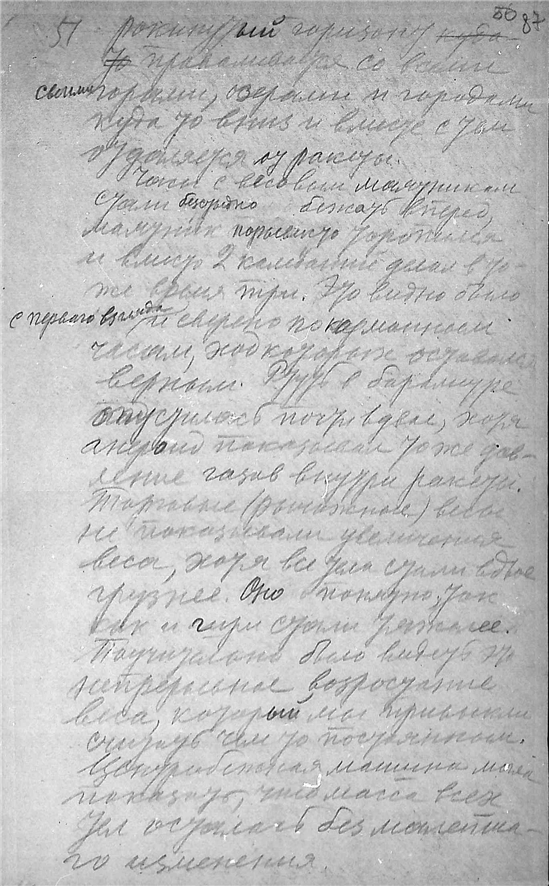 51 рокинутый горизонт 50 87
проваливался со всеми
своими горами, озерами и городами
куда то вниз и вместе с тем
отдалялся от ракеты.
Часы с весовым маятником
стали безумно бежать вперед,
маятник порывисто торопился
и вместо 2 качаний делал в то-
же время три. Это видно было
с первого взгляда и сверено по карманным
часам, ход которых оставался
верным. Ртуть в барометре
опустилась почти вдвое, хотя
анероид показывал тоже дав-
ление газов внутри ракеты.
Торговые (рычажные) весы
не показывали увеличения
веса, хотя все тела стали вдвое
грузнее. Оно понятно, так
как и гири стали тяжелее.
Поучительно было видеть это
непрерывное возростание
веса, который мы привыкли
считать чем то постоянным.
Центробежная машина могла
показать, что масса всех
тел осталась без малейша-
го изменения.